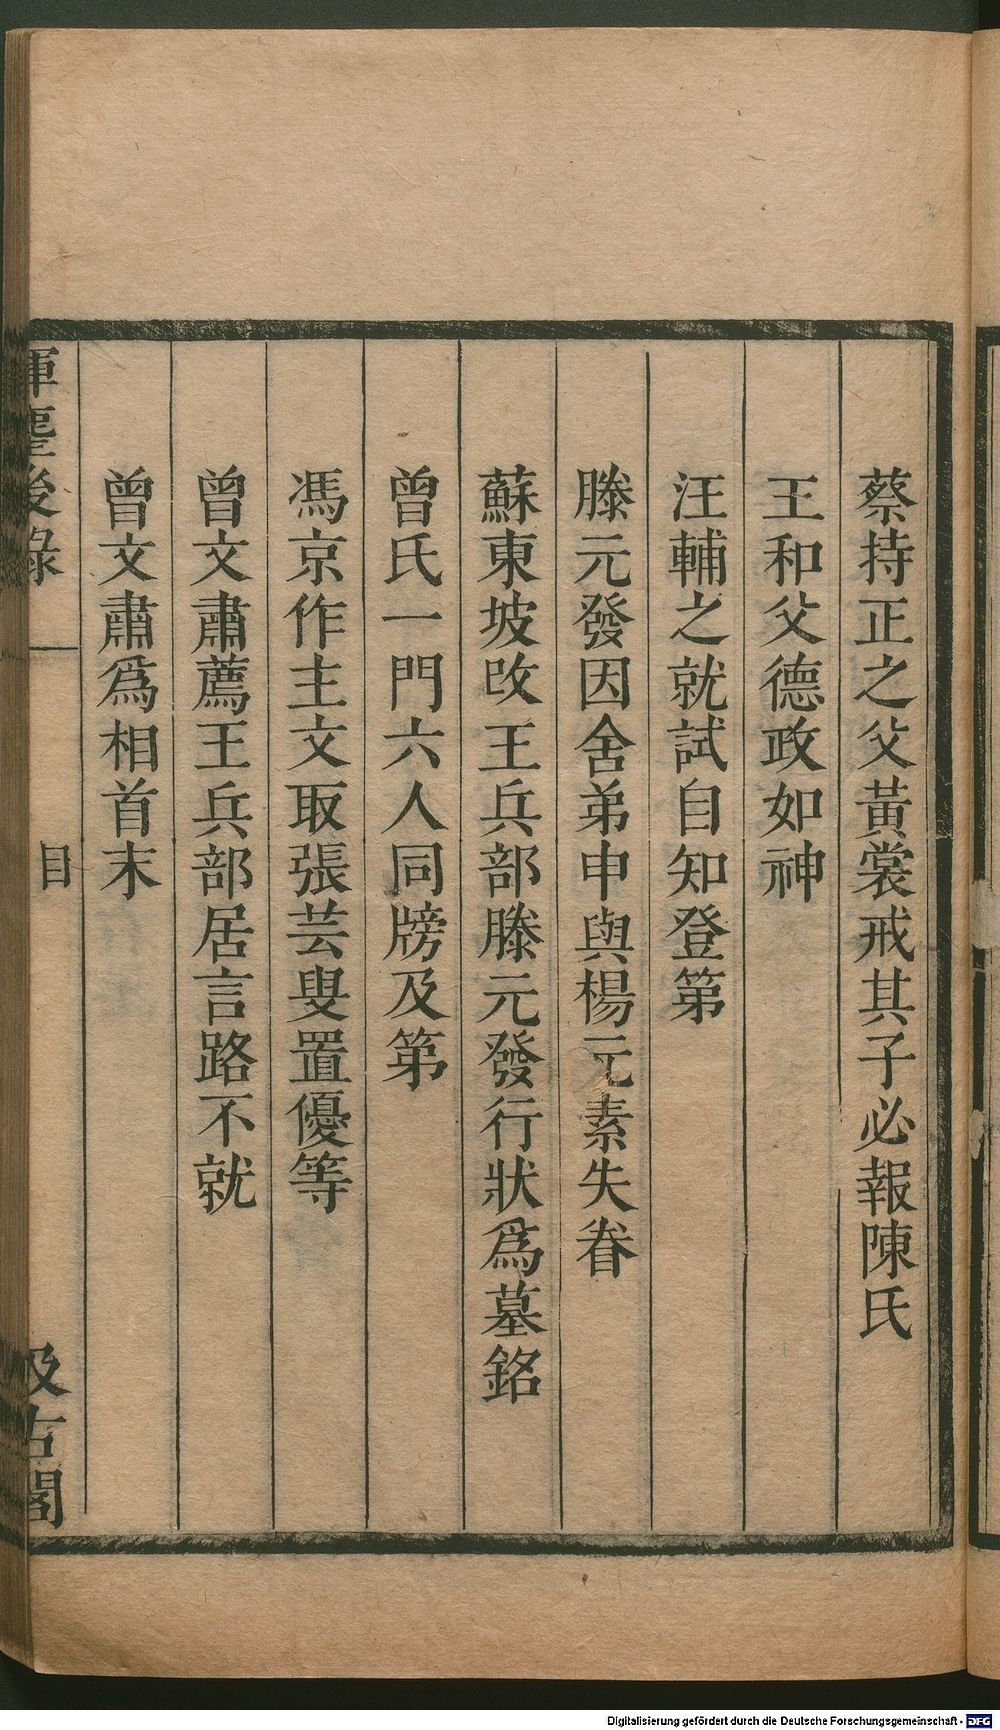 蔡持正之父黃裳戒其子必報陳氏
王和父德政如神
汪輔之就試自知登第
滕元發因舍弟申與楊元素失眷
蘇東坡改王兵部滕元發行狀爲墓銘
曾氏一門六人同牓及第
馮京作主文取張芸叟置優等
曾文肅薦王兵部居言路不就
曾文肅爲相首末
揮麈後錄 目 汲古閣
Digitalisierung gefördert durch die Deutsche Forschungsgemeinschaft - DFG